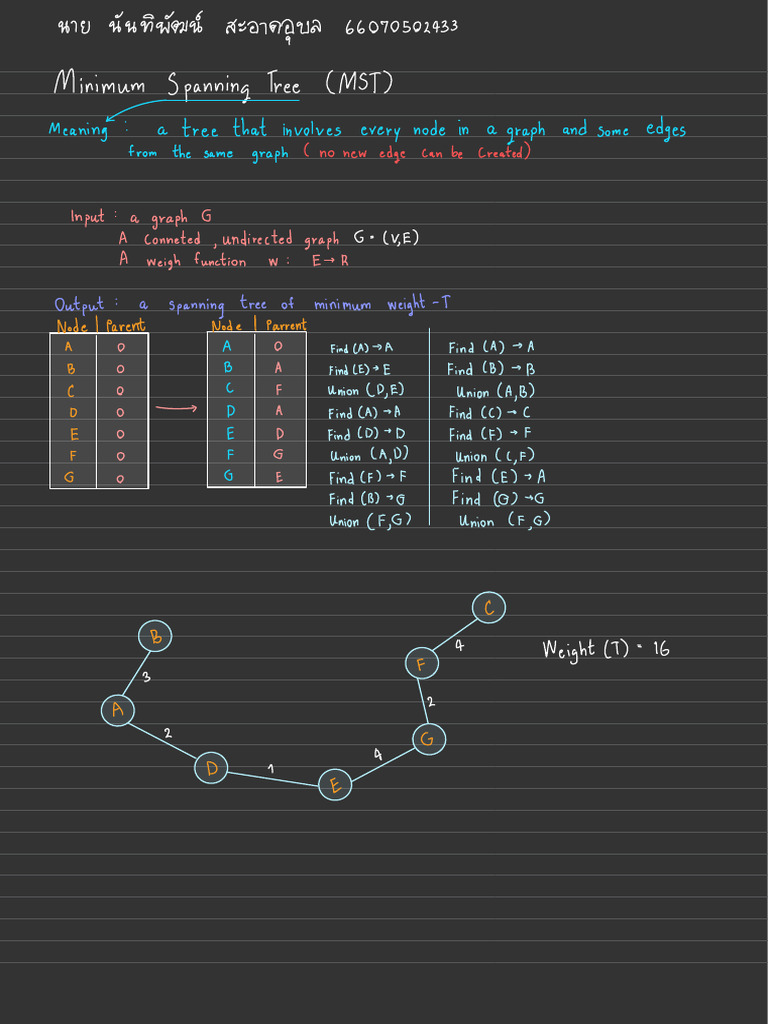 นาย นันทิพัฒน์ สะอาดอุบล 66070502433
Minimum Spanning Tree (MST)
Meaning : a tree that involves every node in a graph and some edges
from the same graph ( no new edge can be created)
Input : a graph G
A Conneted , undirected graph G = (V,E)
A weigh function w : E → R
Output : a spanning tree of minimum weight - T
Node | Parent
A 0
B 0
C 0
D 0
E 0
F 0
G 0
Node | Parrent
A 0
B A
C F
D A
E D
F G
G E
Find (A) → A
Find (E) → E
Union (D,E)
Find (A) → A
Find (D) → D
Union (A,D)
Find (F) → F
Find (B) → G
Union (F,G)
Find (A) → A
Find (B) → B
Union (A,B)
Find (C) → C
Find (F) → F
Union (C,F)
Find (E) → A
Find (G) → G
Union (F,G)
C
B
4
Weight (T) = 16
F
3
A
2
2
G
D
1
4
E